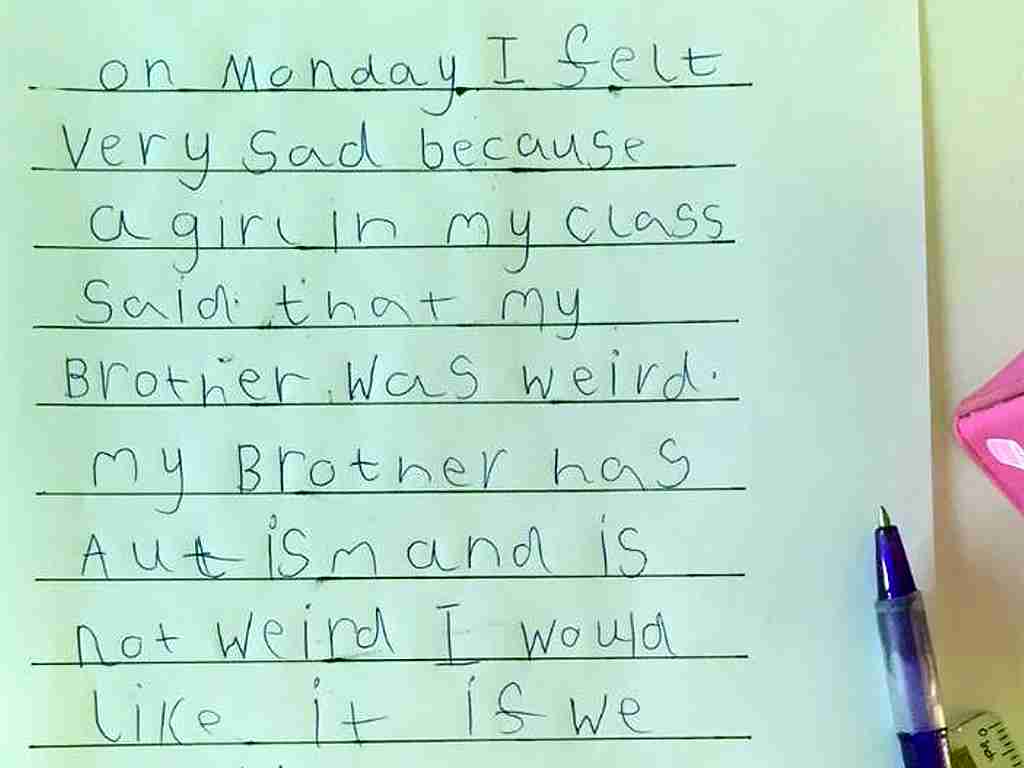 on Monday I felt
Very sad because
a girl in my class
Said that my
Brother was weird.
my Brother has
Autism and is
not weird I would
like it if we